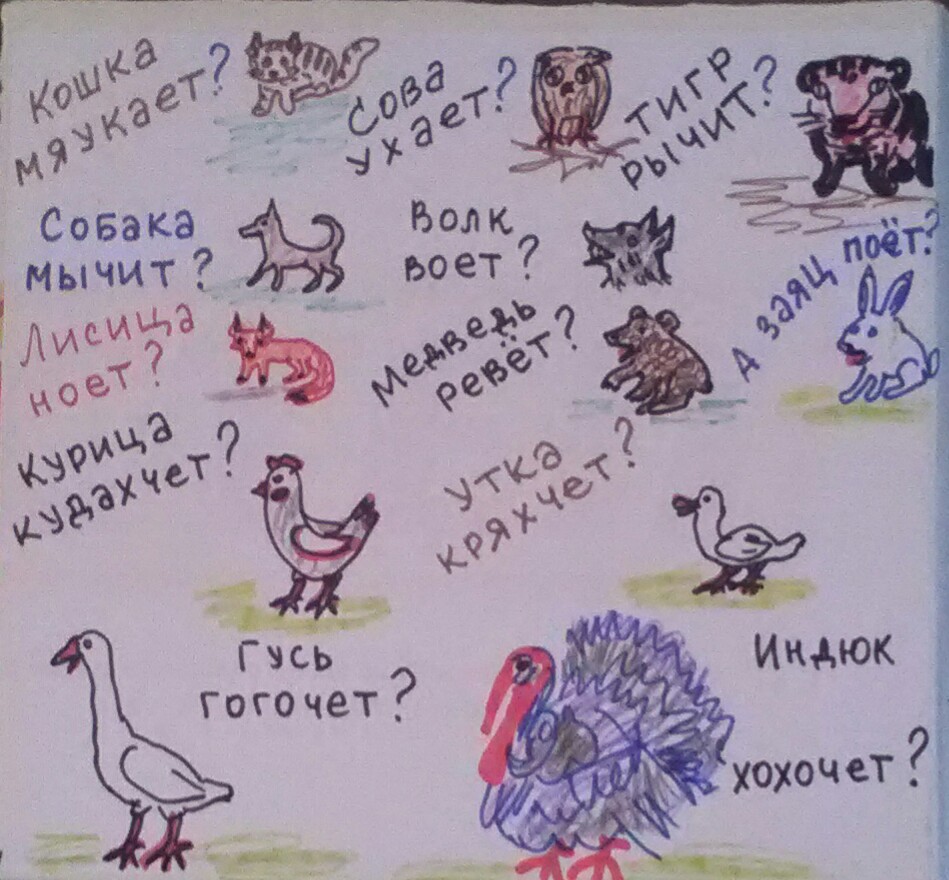 Кошка
мяукает?
Сова
ухает?
Тигр
рычит?
Собака
мычит?
Волк
воет?
А заяц поёт?
Лисица
ноет?
Медведь
ревёт?
Курица
кудахчет?
Утка
кряхчет?
Гусь
гогочет?
Индюк
хохочет?